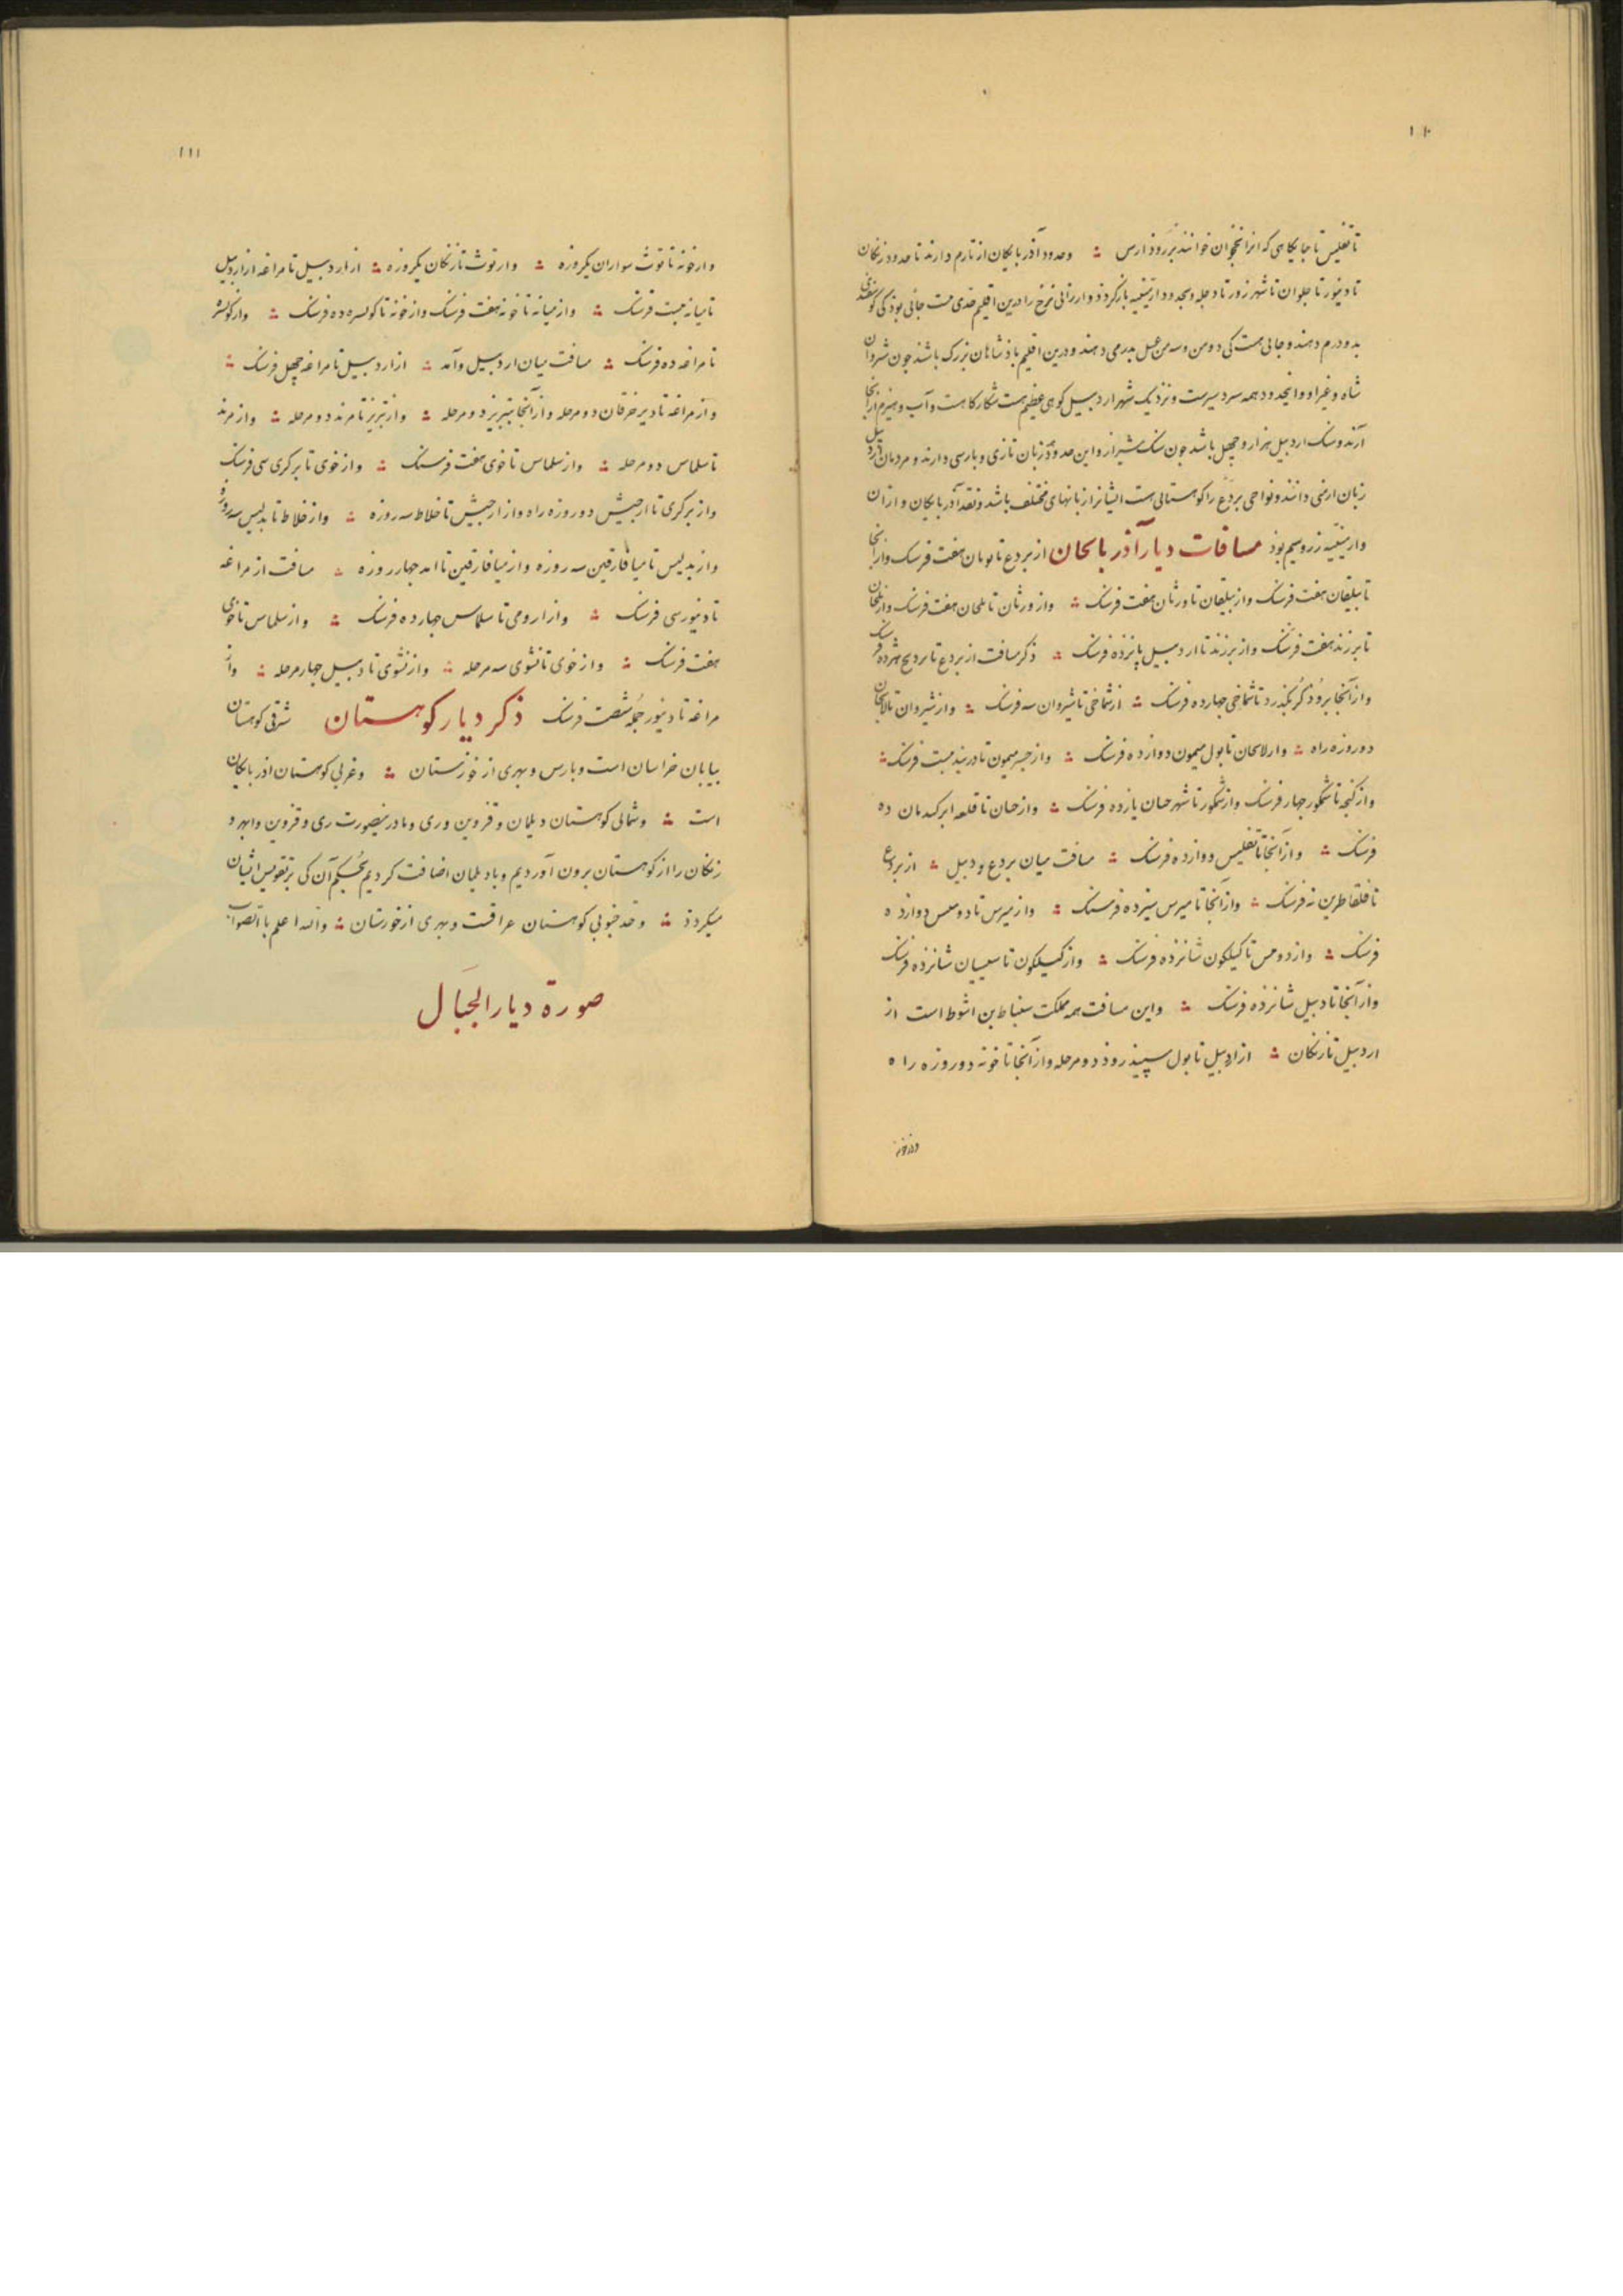 ۱۱۰
تا تفلیس تا جایکاهی که انرا نخجوان خوانند بر روذ ارس ؞ وحدود آذربایکان از تارم دارند تا حدود زنکان
تا دینور تا حلوان تا شهر زور تا دجله وبحدود ارمینیه بازکردذ وارزانی نرخ را درین اقلیم حدی هست جائی بوذ کی کوسفندی
بدو درم دهند وجائی هست کی دو من وسه من عسل بدرمی دهند ودرین اقلیم باذشاهان بزرک باشند جون شروان
شاه وغیر او واینحدود همه سردسیرست ونزدیک شهر اردبیل کوهی عظیم هست شکارکاهست وآب وهیزم ازآنجا
آرند وسنک اردبیل هزار وچهل باشد جون سنک شیراز واین حدوذ زبان تازی وبارسی دارند ومردمان اردبیل
زبان ارمنی دانند ونواحی بردع را کوهستانی هست ایشانرا زبانهای مختلف باشد ونقد آذربایکان واران
وارمینیه زر وسیم بوذ مسافات دیار آذربایجان از بردع تا یونان هفت فرسنک واز آنجا
تا بیلقان هفت فرسنک واز بیلقان تا ورثان هفت فرسنک ؞ واز ورثان تا بلخان هفت فرسنک واز بلخان
تا برزند هفت فرسنک واز برزند تا اردبیل پانزده فرسنک ؞ ذکر مسافت از بردع تا بردیج هژده فرسنک
واز آنجا بروذ کُر بکذرد تا شماخی جهارده فرسنک ؞ از شماخی تا شیروان سه فرسنک ؞ واز شیروان تا لایجان
دو روزه راه ؞ واز لایجان تا پول میمون دوازده فرسنک ؞ واز جسر میمون تا دربند بیست فرسنک ؞
واز کنجه تا شمکور جهار فرسنک واز شمکور تا شهر حنان یازده فرسنک ؞ واز حنان تا قلعه ابرکندمان ده
فرسنک ؞ واز آنجا تا تفلیس دوازده فرسنک ؞ مسافت میان بردع ودبیل ؞ از بردع
تا قلقاطرین نه فرسنک ؞ واز آنجا تا میرس سیزده فرسنک ؞ واز میرس تا دومیس دوازده
فرسنک ؞ واز دومس تا کیلکون شانزده فرسنک ؞ واز کیلکون تا سیسیان شانزده فرسنک
واز آنجا تا دبیل شانزده فرسنک ؞ واین مسافت همه مملکت سنباط بن اشوط است از
اردبیل تا زنکان ؞ از اردبیل تا پول سپیذ روذ دو مرحله واز آنجا تا خونه دو روزه راه
واز خونه
۱۱۱
واز خونه تا توث سواران یکروزه ؞ واز توث تا زنکان یکروزه ؞ از اردبیل تا مراغه از اردبیل
تا میانه بیست فرسنک ؞ واز میانه تا خونه هفت فرسنک واز خونه تا کولسره ده فرسنک ؞ واز کولسره
تا مراغه ده فرسنک ؞ مسافت میان اردبیل وآمد ؞ از اردبیل تا مراغه چهل فرسنک ؞
واز مراغه تا دیر خرقان دو مرحله واز آنجا بتبریز دو مرحله ؞ واز تبریز تا مرند دو مرحله ؞ واز مرند
تا سلماس دو مرحله ؞ واز سلماس تا خوی هفت فرسنک ؞ واز خوی تا برکری سی فرسنک
واز برکری تا ارجیش دو روزه راه واز ارجیش تا خلاط سه روزه ؞ واز خلاط تا بدلیس سه روزه
واز بدلیس تا میافارقین سه روزه واز میافارقین تا امد جهار روزه ؞ مسافت از مراغه
تا دینور سی فرسنک ؞ واز ارومی تا سلماس جهارده فرسنک ؞ واز سلماس تا خوی
هفت فرسنک ؞ واز خوی تا نشوی سه مرحله ؞ واز نشوی تا دبیل جهار مرحله ؞ واز
مراغه تا دینور جمله شصت فرسنک ذکر دیار کوهستان شرقی کوهستان
بیابان خراسان است وبارس وبهری از خوزستان ؞ وغربی کوهستان اذربایکان
است ؞ وشمالی کوهستان دیلمان وقزوین وری وما درینصورت ری وقزوین وابهر و
زنکان را از کوهستان برون آوردیم وبادیلمان اضافت کردیم بحکم آن کی برتقویس ایشان
میکردذ ؞ وحد جنوبی کوهستان عراقست وبهری از خورستان ؞ والله اعلم بالصواب
صورة دیار الجبال